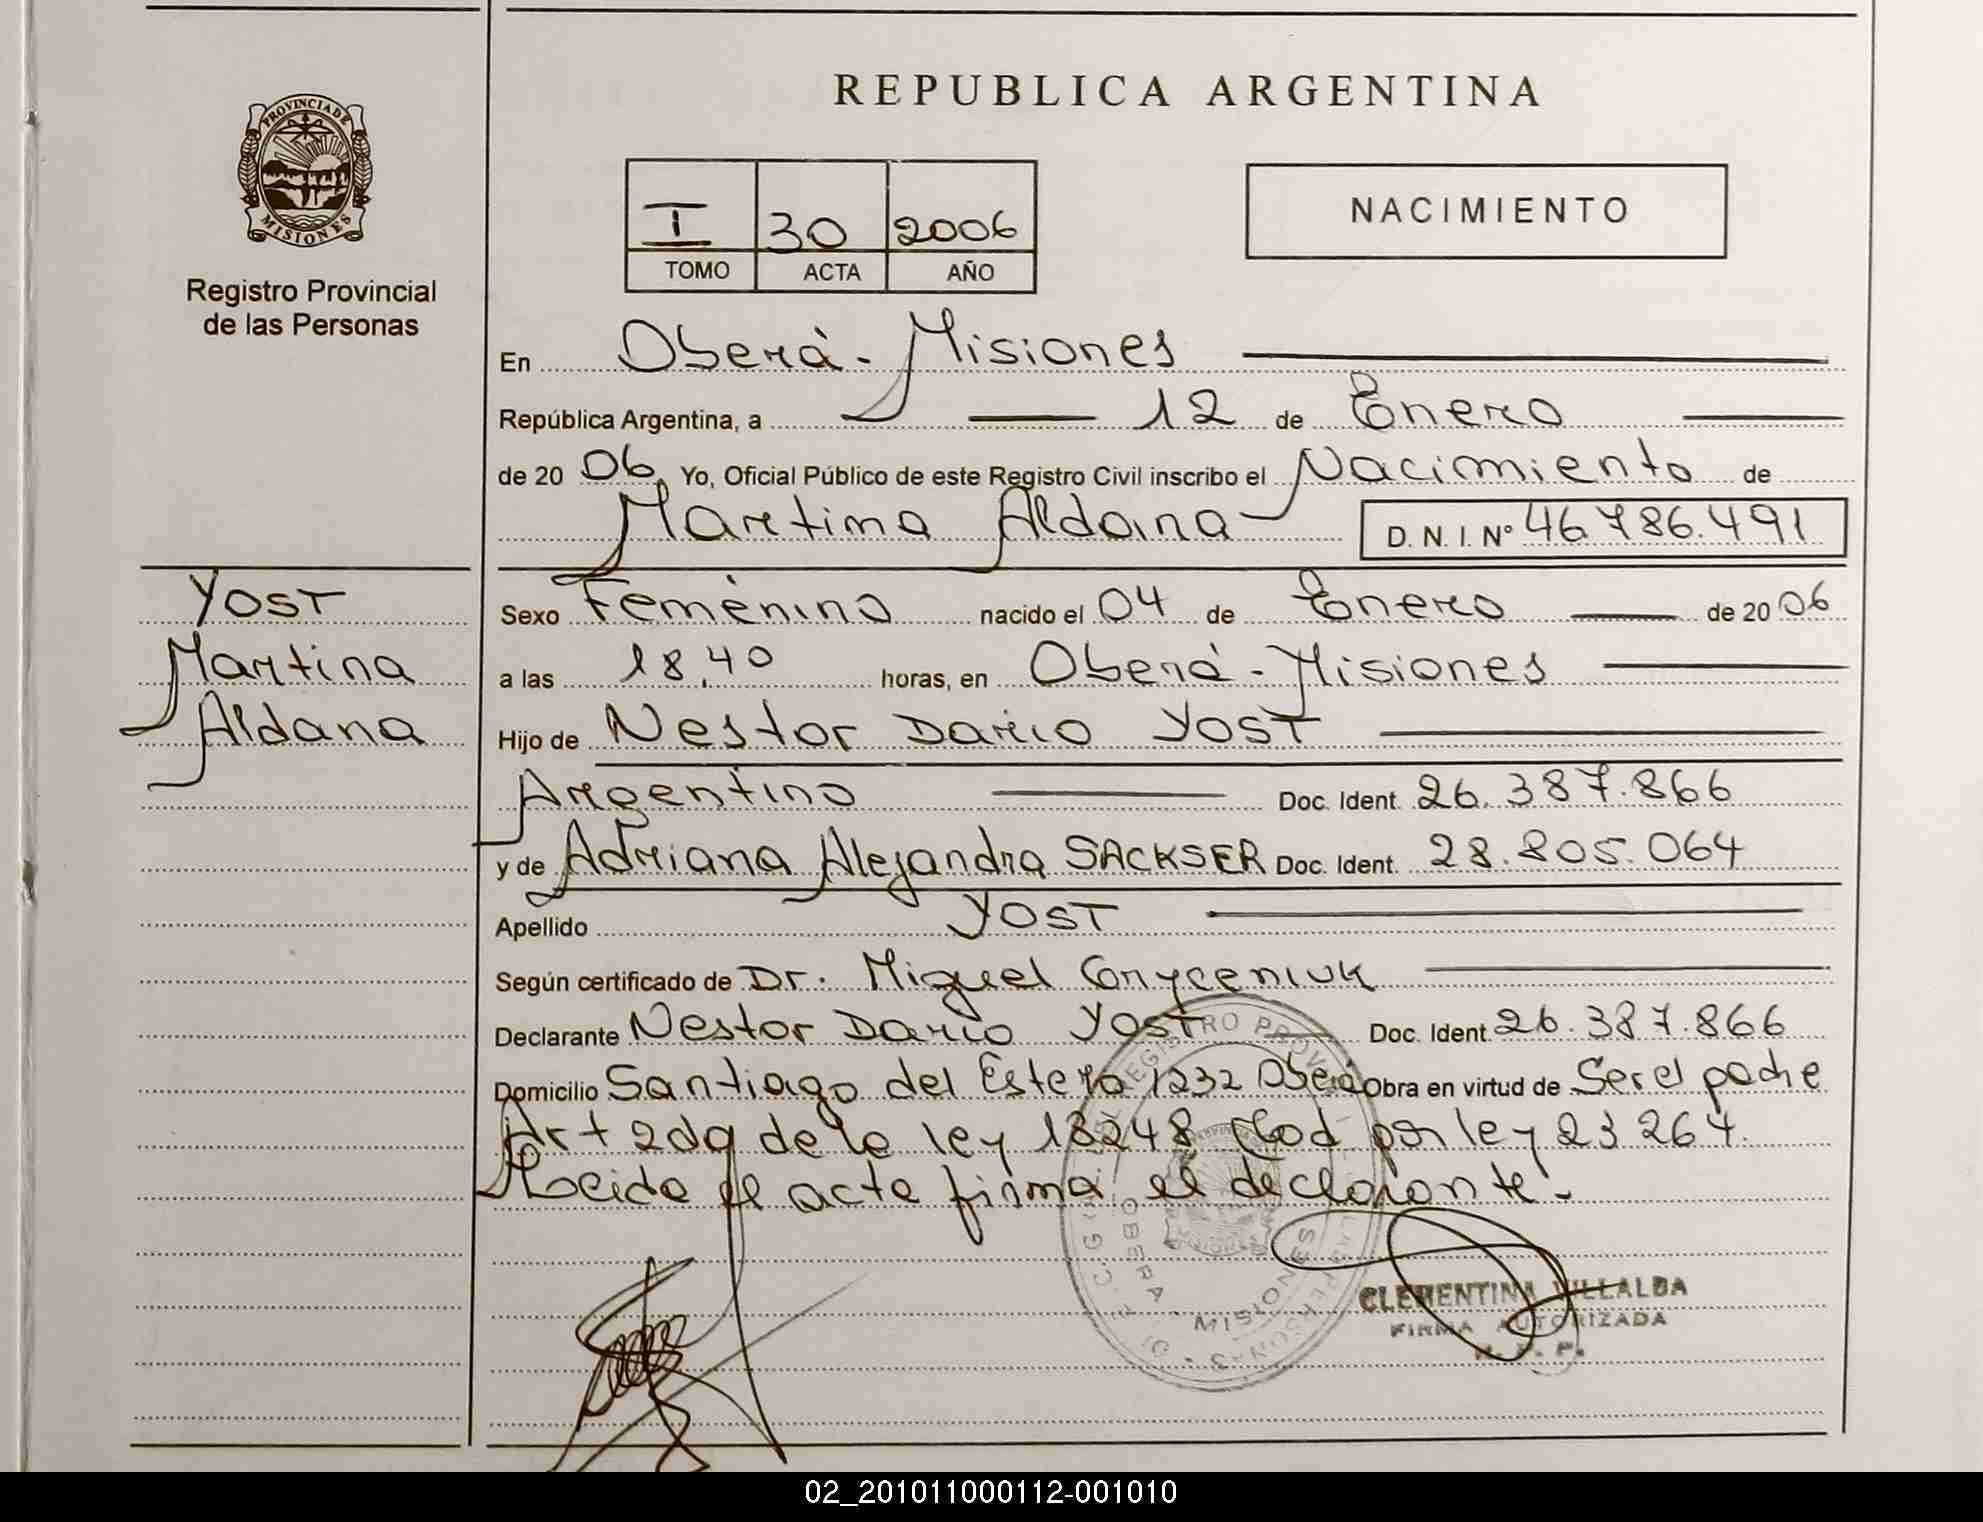 REPUBLICA ARGENTINA
PROVINCIA DE
MISIONES
Registro Provincial
de las Personas
I 30 2006
TOMO ACTA AÑO
NACIMIENTO
En Oberá - Misiones
República Argentina, a 12 de Enero
de 20 06 Yo, Oficial Público de este Registro Civil inscribo el Nacimiento de
Martina Aldana D. N. I. Nº 46.786.491
YOST
Martina
Aldana
Sexo Femenino nacido el 04 de Enero de 20 06
a las 18,40 horas, en Oberá - Misiones
Hijo de Nestor Dario YOST
Argentino Doc. Ident. 26.387.866
y de Adriana Alejandra SACKSER Doc. Ident. 28.805.064
Apellido YOST
Según certificado de Dr. Miguel
Declarante Nestor Dario YOST Doc. Ident. 26.387.866
Domicilio Santiago del Estero 1232 Oberá Obra en virtud de Ser el padre
Art 2do de la ley 18248 Mod por ley 23264.
Leida el acta firma el declarante.
OBERA - MISIONES
CLEMENTINA VILLALBA
FIRMA AUTORIZADA
R. P. P.
02_201011000112-001010